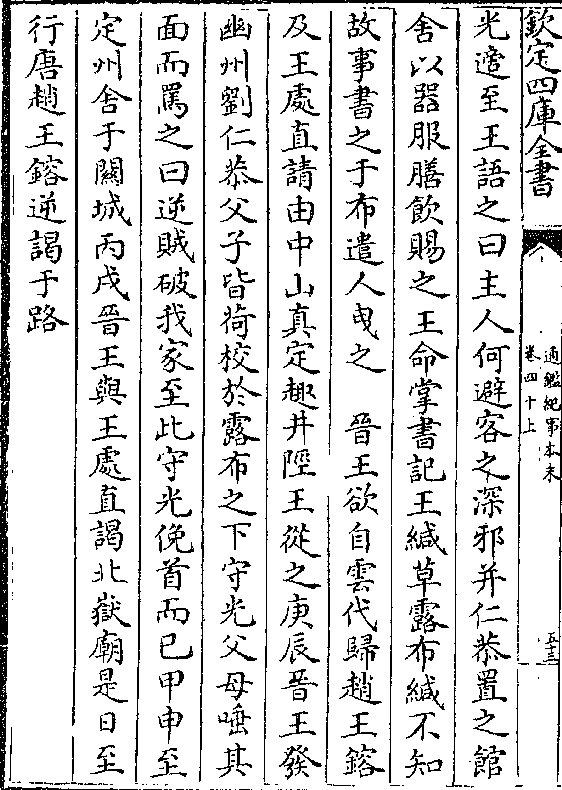 欽定四庫全書
通鑑紀事本末
卷四十上
五十三
光適至王語之曰主人何避客之深邪并仁恭置之館
舍以器服膳飲賜之王命掌書記王緘草露布緘不知
故事書之于布遣人曳之　晉王欲自雲代歸趙王鎔
及王處直請由中山真定趣井陘王從之庚辰晉王發
幽州劉仁恭父子皆荷校於露布之下守光父母唾其
面而罵之曰逆賊破我家至此守光俛首而已甲申至
定州舍于闗城丙戌晉王與王處直謁北嶽廟是日至
行唐趙王鎔逆謁于路